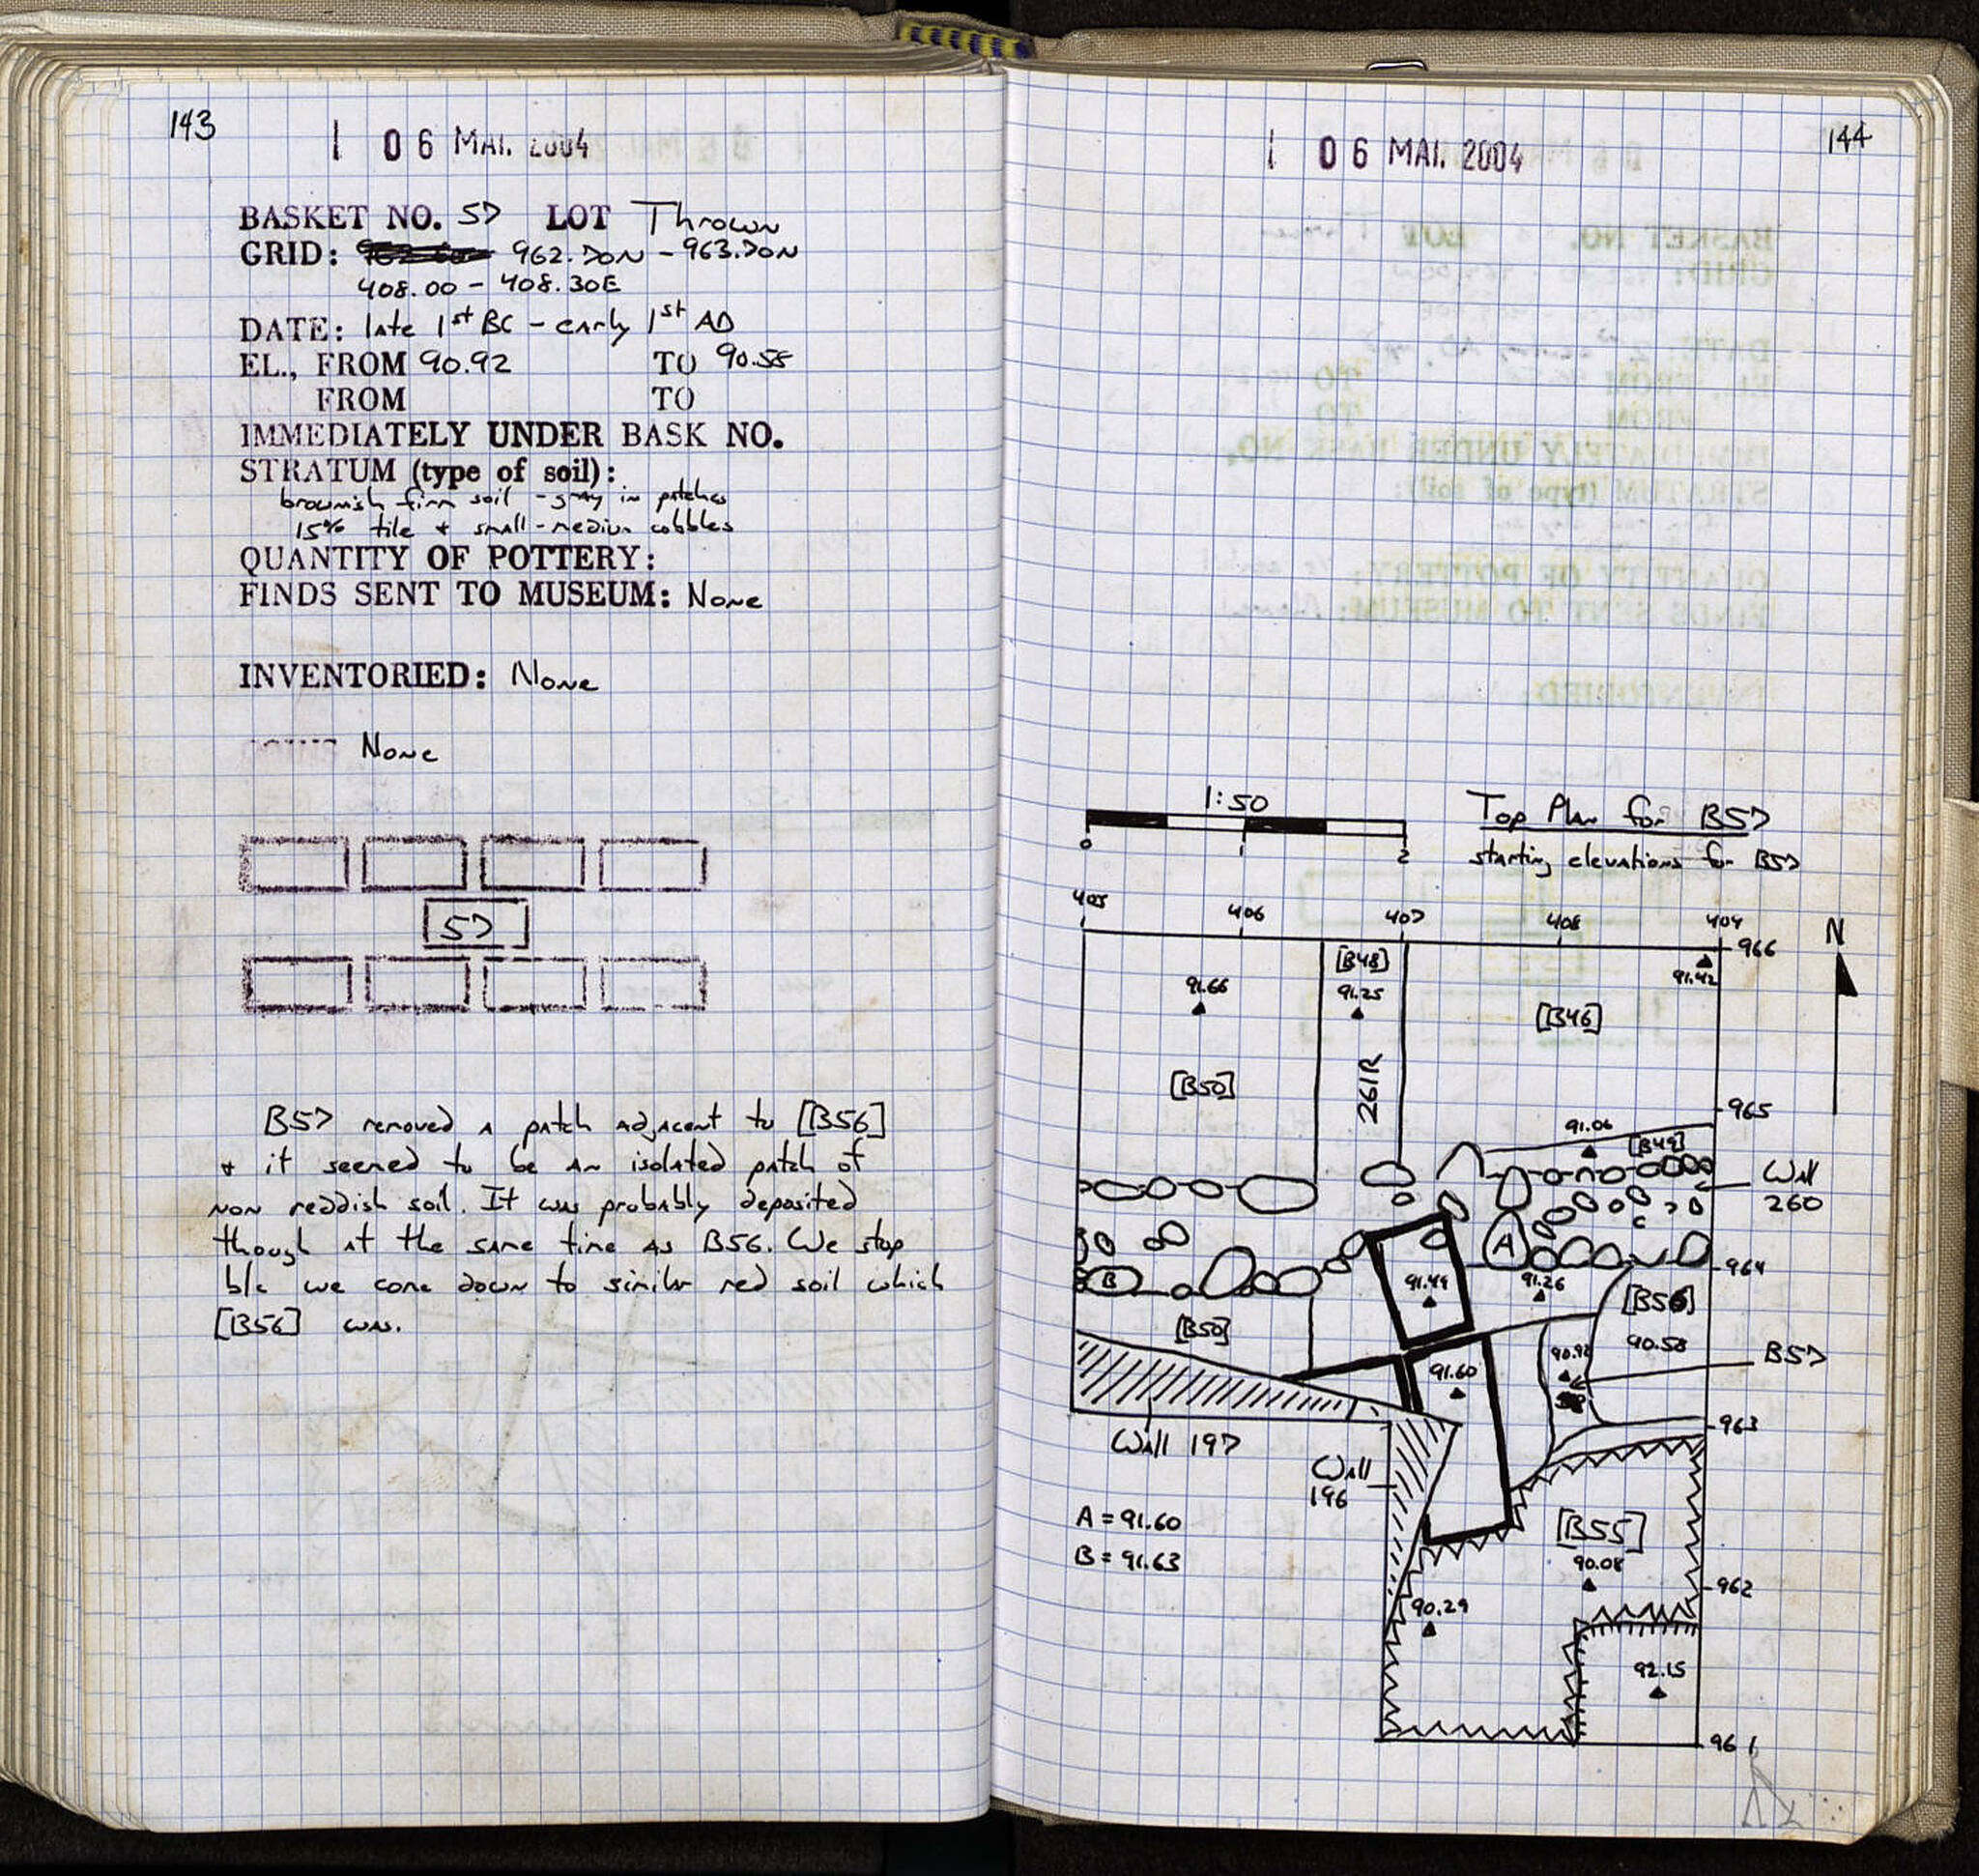 143
06 MAI. 2004
BASKET NO. 57 LOT Thrown
GRID: 962.70N - 963.70N
408.00 - 408.30E
DATE: late 1st BC - early 1st AD
EL., FROM 90.92 TO 90.58
FROM TO
IMMEDIATELY UNDER BASK NO.
STRATUM (type of soil):
brownish firm soil - gray in patches
15% tile + small-medium cobbles
QUANTITY OF POTTERY:
FINDS SENT TO MUSEUM: None
INVENTORIED: None
None
57
B57 removed a patch adjacent to [B56]
+ it seemed to be an isolated patch of
non reddish soil. It was probably deposited
though at the same time as B56. We stop
b/c we come down to similar red soil which
[B56] was.
144
06 MAI. 2004
1:50
0 1 2
Top Plan for B57
starting elevations for B57
405 406 407 408 409
N
966
[B48]
91.42
91.66
91.25
[B46]
[B50]
261R
965
91.06
[B49]
Wall
260
A
964
91.44
91.26
B
[B56]
[B50]
90.58
90.92
B57
91.60
963
Wall 197
Wall
196
A = 91.60
B = 91.63
[B55]
90.08
962
90.29
92.15
961